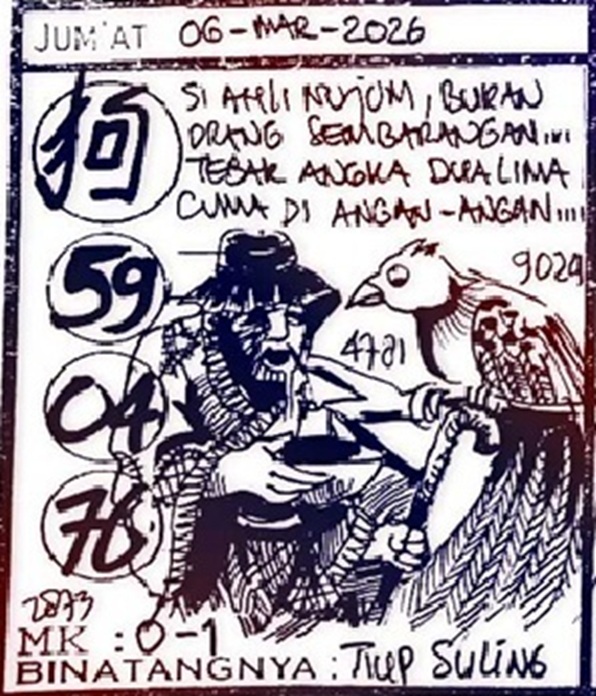 JUM'AT 06-MAR-2026
狗
SI AHLI NUJUM, BUKAN
ORANG SEMBARANGAN....
TEBAK ANGKA DUA LIMA
CUMA DI ANGAN-ANGAN....
59
9029
4781
04
76
2873
MK : 0-1
BINATANGNYA : TIUP SULING